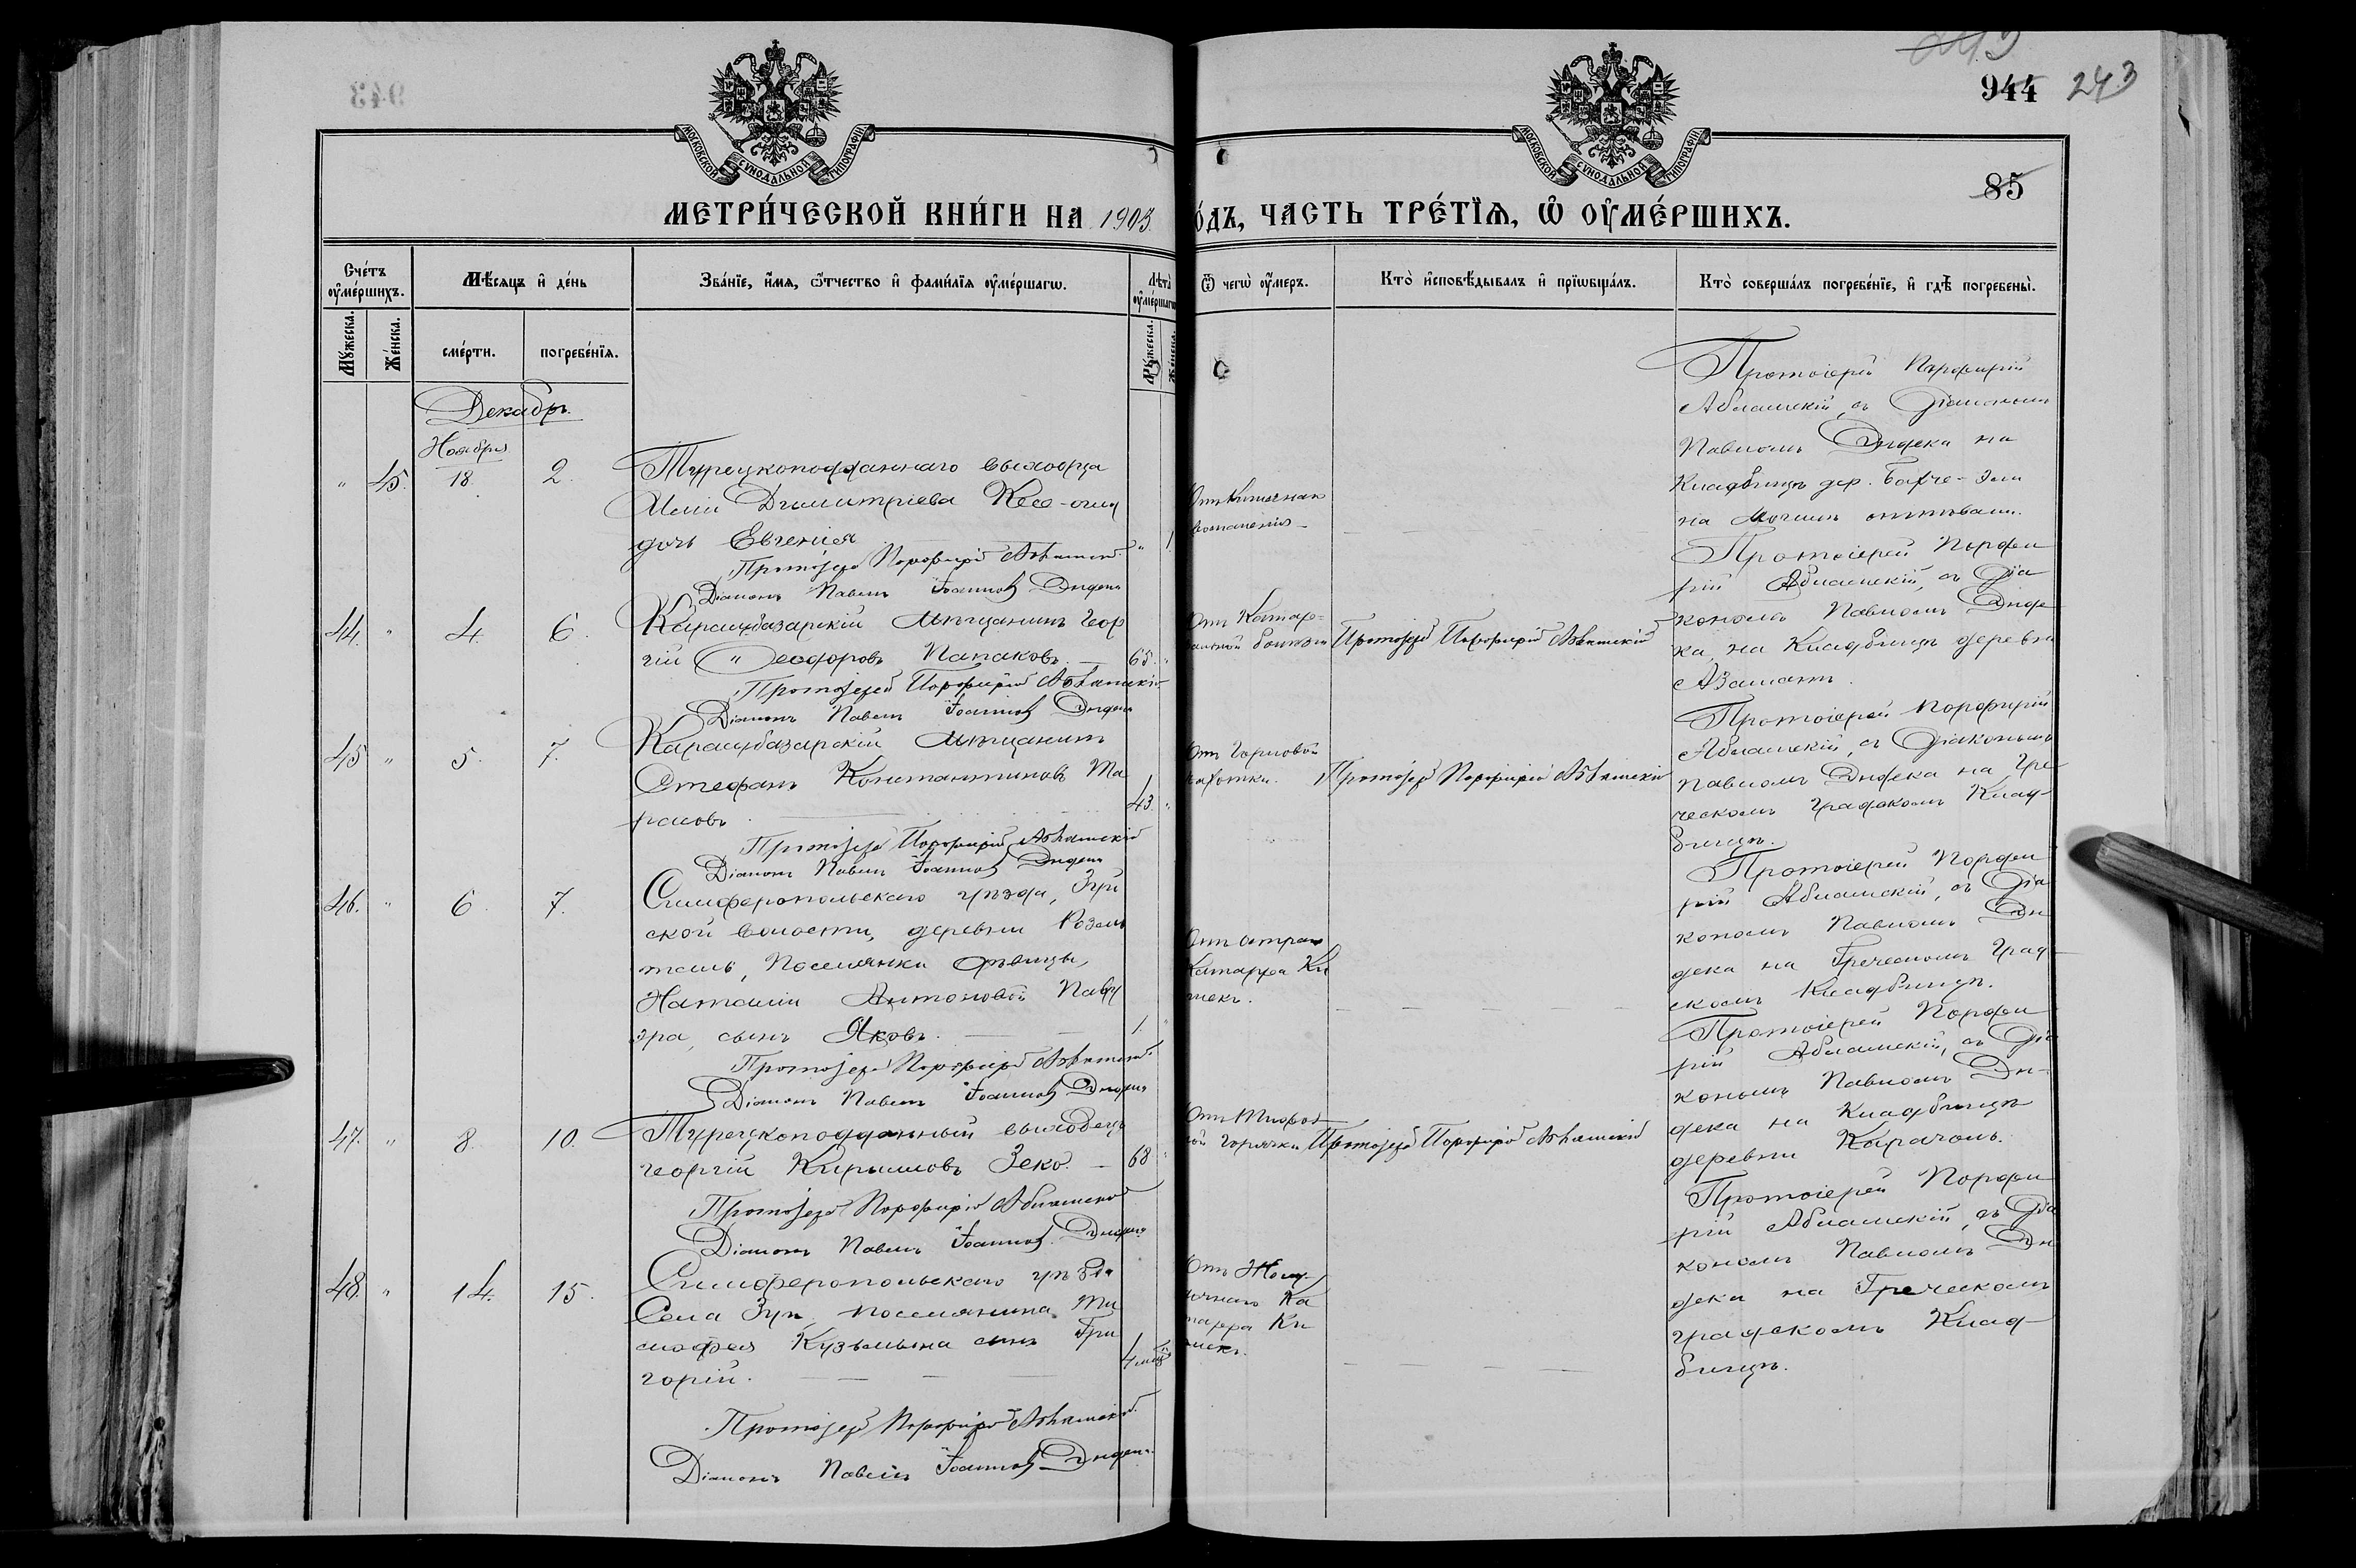 943
944 243
85
МОСКОВСКОЙ СѴНОДАЛЬНОЙ ТИПОГРАФІИ
МОСКОВСКОЙ СѴНОДАЛЬНОЙ ТИПОГРАФІИ
МЕТРИ́ЧЕСКОЙ КНИ́ГИ НА 1903
О́ДЪ, ЧАСТЬ ТРЕ́ТЇѦ, Ѡ҆ ОУ҆МЕ́РШИХЪ.
Сче́тъ оу҆ме́ршихъ.
Мꙋ́жеска.
Же́нска.
Мѣ́сѧцъ и҆ де́нь
сме́рти.
погребе́нїѧ.
Зва́нїе, и҆́мѧ, ѻ҆́тчество и҆ фами́лїѧ оу҆ме́ршагѡ.
Лѣ́та оу҆ме́ршагѡ
Мꙋ́жеска.
Же́нска.
Ѿ чегѡ̀ оу҆́меръ.
Кто̀ и҆сповѣ́дывалъ и҆ прїѡбща́лъ.
Кто̀ соверша́лъ погребе́нїе, и҆ гдѣ̀ погребены̀.
Декабрь
Ноября
" 45. 18. 2.
Турецкоподданнаго выходца
Иліи Димитріева Кесе-оглу
дочь Евгенія " 1.
Протоіерей Порфирій
Діаконъ Павелъ Іоанновъ Дидека
Протоіерей Порфирій
съ Діакономъ
Павломъ Дидека на
Кладбищѣ дер. Бахче-Эли
на
44. " 4. 6.
Карасубазарскій Мѣщанинъ Геор
гій Ѳеодоровъ Папаковъ 65. "
Протоіерей Порфирій
Діаконъ Павелъ Іоанновъ Дидека
Протоіерей Порфирій
Протоіерей Порфи
рій съ Діа
кономъ Павломъ Диде
ка, на Кладбищѣ деревни
Азаматъ.
45 " 5. 7.
Карасубазарскій Мѣщанинъ
Стефанъ Константиновъ Та
расовъ 43. "
Протоіерей Порфирій
Діаконъ Павелъ Іоанновъ Дидека
Отъ Горловой
чахотки.
Протоіерей Порфирій
Протоіерей Порфирій
съ Діакономъ
Павломъ Дидека на Гре
ческомъ Градскомъ Клад
бищѣ.
46. " 6. 7.
Симферопольскаго уѣзда, Зуй
ской волости, деревни Розен
таль, Поселянки дѣвицы,
Наталіи Антоновой
сынъ Яковъ. 1. "
Протоіерей Порфирій
Діаконъ Павелъ Іоанновъ Дидека
Отъ остраго
Катарра Ки
шекъ.
Протоіерей Порфи
рій съ Діа
кономъ Павломъ Ди
дека на Греческомъ Град
скомъ Кладбищѣ.
47. " 8. 10.
Турецкоподданный выходецъ
Георгій Кирилловъ Зеко. 68 "
Протоіерей Порфирій
Діаконъ Павелъ Іоанновъ Дидека
Протоіерей Порфирій
Протоіерей Порфи
рій съ Діа
кономъ Павломъ Ди-
дека на Кладбищѣ
деревни Карачоль.
48. " 14. 15.
Симферопольскаго уѣзда
Села Зуи, поселянина Ти
мофея Кузьмина сынъ Гри
горій.
Протоіерей Порфирій
Діаконъ Павелъ Іоанновъ Дидека
Отъ Желу
дочнаго Ка
тарра Ки
шекъ.
Протоіерей Порфи
рій съ Діа
кономъ Павломъ Ди
дека на Греческомъ
градскомъ Клад
бищѣ.